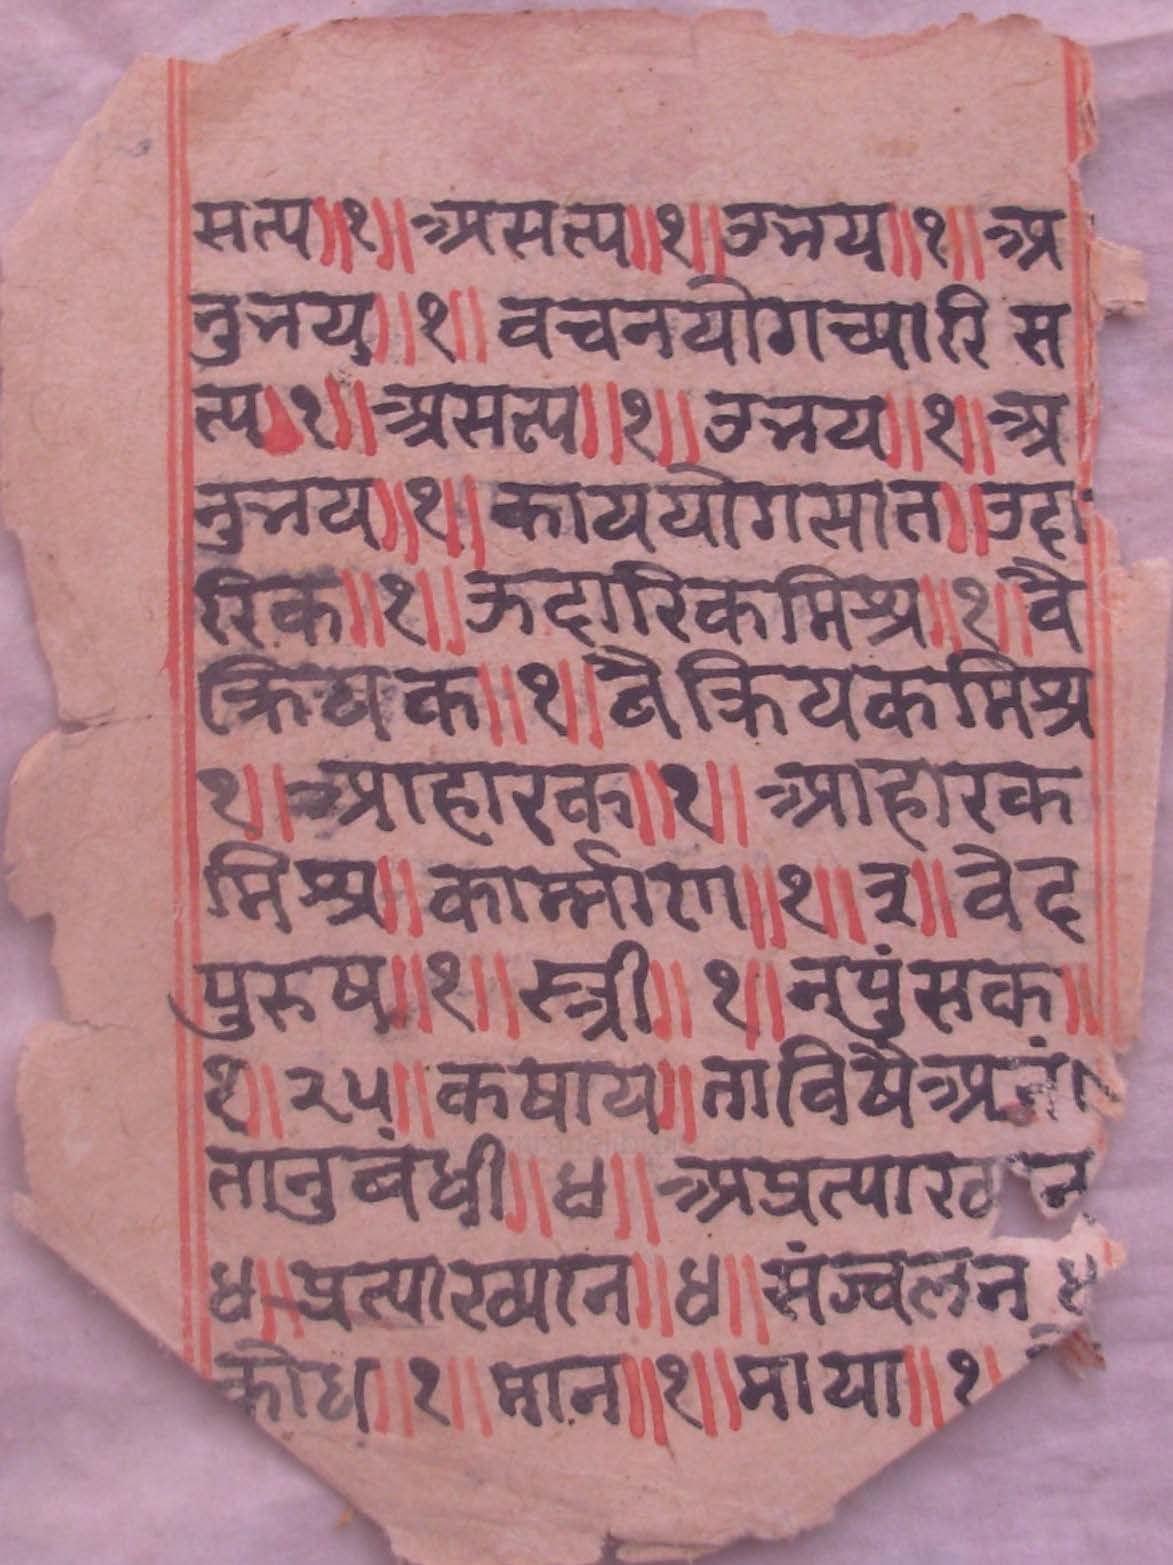 सत्य॥१॥ असत्य॥१॥ उभय॥१॥ अ
नुभय॥१॥ वचनयोगच्यारि स
त्य॥१॥ असत्य॥१॥ उभय॥१॥ अ
नुभय॥१॥ काययोगसात॥उदा
रिक॥१॥ ऊदारिकमिश्र॥१॥वै
क्रियक॥१॥वैक्रियकमिश्र
१॥ आहारक॥१॥ आहारक
मिश्र॥ कार्म्माण॥१॥३॥वेद
पुरुष॥१॥ स्त्री॥ १॥नपुंसक॥
१॥२५॥कषाय॥ताविषैअनं
तानुबंधी॥४॥ अप्रत्याख्यान
४॥प्रत्याख्यान॥४॥संज्वलन ४
क्रोध॥१॥मान॥१॥माया॥१॥